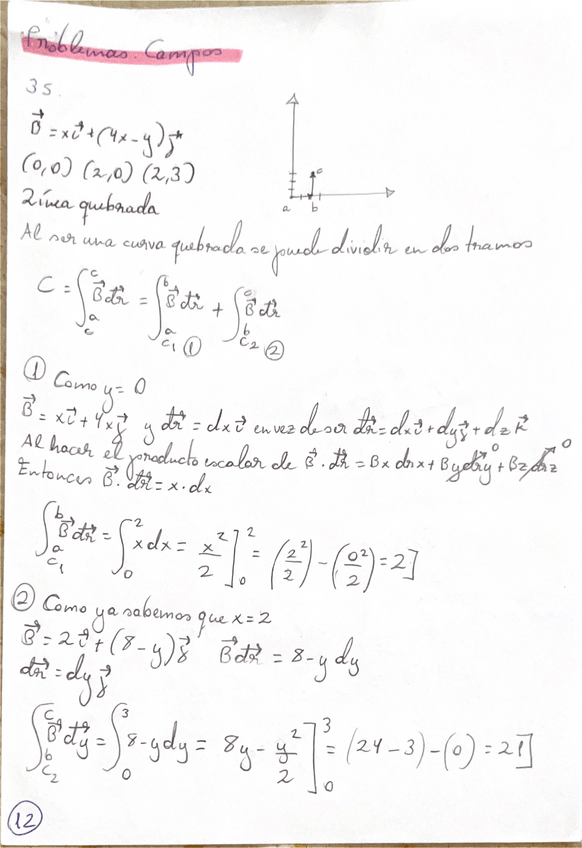 Problemas. Campos
35.
B⃗ = xi⃗ + (4x-y)j⃗
(0,0) (2,0) (2,3)
Línea quebrada
a b c
Al ser una curva quebrada se puede dividir en dos tramos
C = ∫_a^c B⃗ dr⃗ = ∫_a^b B⃗ dr⃗ + ∫_b^c B⃗ dr⃗
c c₁ ① c₂ ②
① Como y = 0
B⃗ = xi⃗ + 4xj⃗ y dr⃗ = dx i⃗ en vez de ser dr⃗ = dxi⃗ + dyj⃗ + dz k⃗
Al hacer el producto escalar de B⃗ · dr⃗ = Bx drx + By dry⁰ + Bz drz⁰
Entonces B⃗ · dr⃗ = x · dx
∫_a^b B⃗ dr⃗ = ∫_0^2 x dx = x²/2 ]_0^2 = (2²/2) - (0²/2) = 2]
c₁
② Como ya sabemos que x = 2
B⃗ = 2i⃗ + (8-y)j⃗ B⃗ dr⃗ = 8-y dy
dr⃗ = dy j⃗
∫_b^c B⃗ dy⃗ = ∫_0^3 8-y dy = 8y - y²/2 ]_0^3 = (24-3) - (0) = 21]
c₂
12